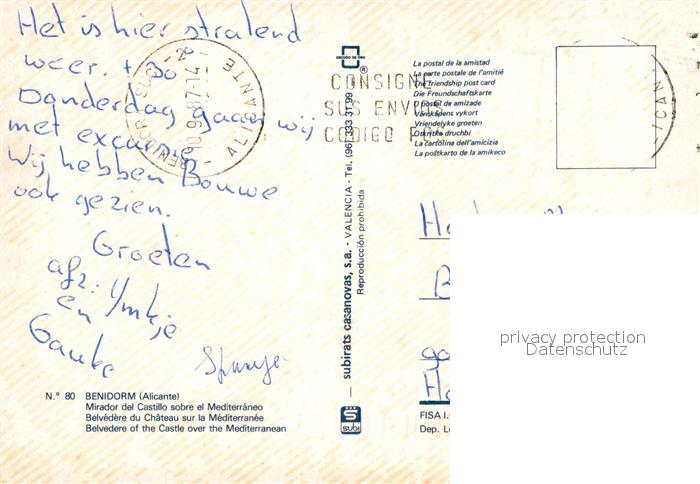 Het is hier stralend
weer. + 30
Donderdag gaan wij
met excursie
Wij hebben Bouwe
ook gezien.
Groeten
afz: Ymkje
en
Gauke
N.º 80 BENIDORM (Alicante)
Mirador del Castillo sobre el Mediterráneo
Belvédère du Château sur la Méditerranée
Belvedere of the Castle over the Mediterranean
BENIDORM
ALICANTE
CONSIGNE
SUS ENVIOS
CODIGO
subirats casanovas, s.a. - VALENCIA - Tel. (96)
Reproducción prohibida
CIRCULO DE ORO
SUBI
La postal de la amistad
La carte postale de l'amitié
The friendship post card
Die Freundschaftskarte
O postal de amizade
Vänskapens vykort
Vriendelyke groeten
Otkritka druchbi
La cartolina dell'amicizia
La postkarto de la amikeco
FISA I.
Dep. L
privacy protection
Datenschutz